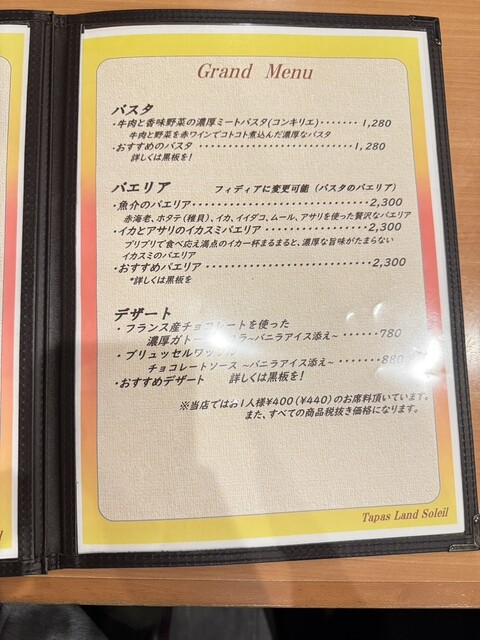 Grand Menu
パスタ
・牛肉と香味野菜の濃厚ミートパスタ(コンキリエ)・・・・・・・1,280
牛肉と野菜を赤ワインでコトコト煮込んだ濃厚なパスタ
・おすすめのパスタ・・・・・・・・・・・・・・・・・・・・・・・・・・・1,280
詳しくは黒板を!
パエリア フィディアに変更可能(パスタのパエリア)
・魚介のパエリア・・・・・・・・・・・・・・・・・・・・・・・・・・2,300
赤海老、ホタテ(稚貝)、イカ、イイダコ、ムール、アサリを使った贅沢なパエリア
・イカとアサリのイカスミパエリア・・・・・・・・・・・・・・・・2,300
プリプリで食べ応え満点のイカ一杯まるまると、濃厚な旨味がたまらない
イカスミのパエリア
・おすすめパエリア・・・・・・・・・・・・・・・・・・・・・・・・2,300
*詳しくは黒板を
デザート
・フランス産チョコレートを使った
濃厚ガトー ラ~バニラアイス添え~・・・・・・780
・ブリュッセルワッフル
チョコレートソース ~バニラアイス添え~・・・・・・・・880
・おすすめデザート 詳しくは黒板を!
※当店ではお1人様¥400(¥440)のお席料頂いています。
また、すべての商品税抜き価格になります。
Tapas Land Soleil